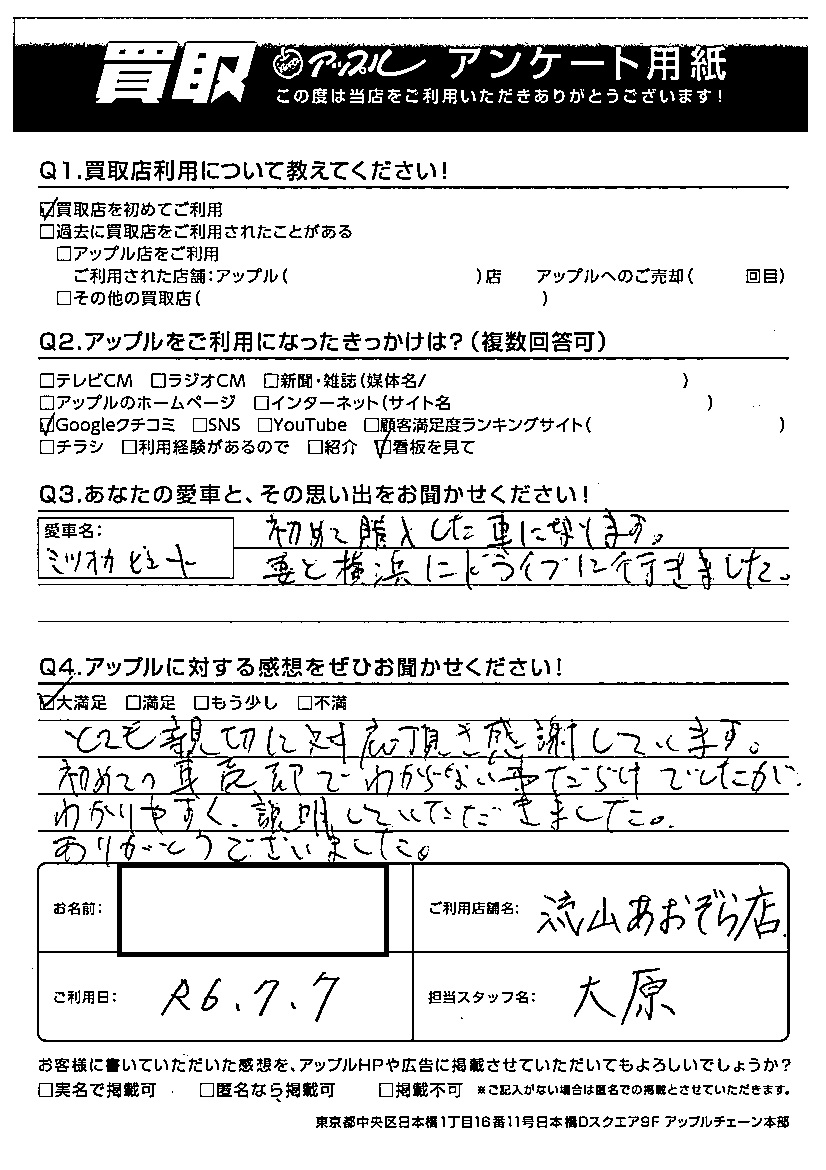 買取 アップル アンケート用紙
この度は当店をご利用いただきありがとうございます！
Q1.買取店利用について教えてください！
☑買取店を初めてご利用
□過去に買取店をご利用されたことがある
□アップル店をご利用
ご利用された店舗：アップル（ ）店 アップルへのご売却（ 回目）
□その他の買取店（ ）
Q2.アップルをご利用になったきっかけは？（複数回答可）
□テレビCM □ラジオCM □新聞・雑誌（媒体名/ ）
□アップルのホームページ □インターネット（サイト名 ）
☑Googleクチコミ □SNS □YouTube □顧客満足度ランキングサイト（ ）
□チラシ □利用経験があるので □紹介 ☑看板を見て
Q3.あなたの愛車と、その思い出をお聞かせください！
愛車名：
ミツオカ ビュート
初めて購入した車になります。
妻と横浜にドライブに行きました。
Q4.アップルに対する感想をぜひお聞かせください！
☑大満足 □満足 □もう少し □不満
とても親切に対応頂き感謝しています。
初めての車売却でわからない事だらけでしたが、
わかりやすく、説明していただきました。
ありがとうございました。
お名前： ご利用店舗名： 流山あおぞら店
ご利用日： R6.7.7 担当スタッフ名： 大原
お客様に書いていただいた感想を、アップルHPや広告に掲載させていただいてもよろしいでしょうか？
□実名で掲載可 □匿名なら掲載可 □掲載不可 ※ご記入がない場合は匿名での掲載とさせていただきます。
東京都中央区日本橋1丁目16番11号日本橋Dスクエア9F アップルチェーン本部